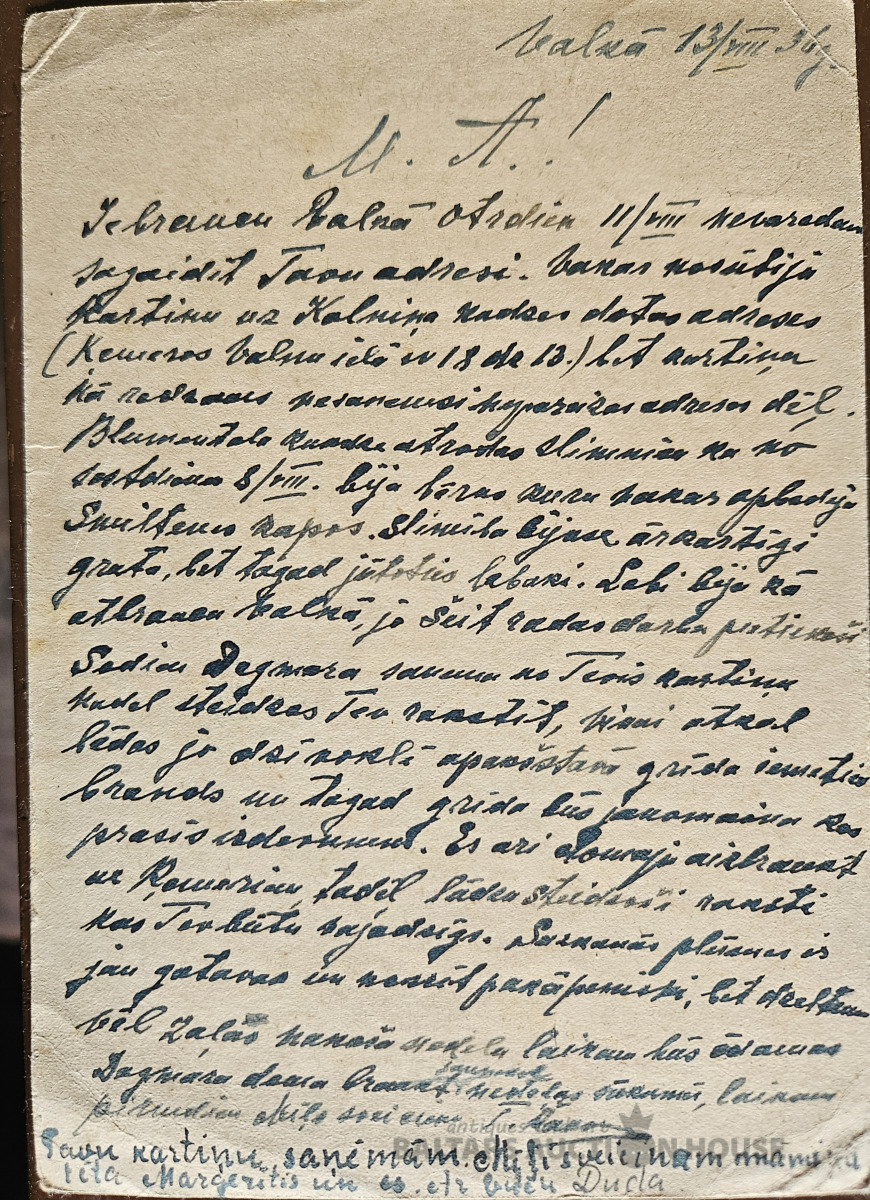 Valkā 13/VIII 36g.
M. A.!
Iebraucu Valkā otrdien 11/VIII nevaredam
sagaidit Tavu adresi. Vakar nosūtiju
kartiņu uz Kalniņa kadzes dotas adreses
(Ķemeros Valņu ielā № 18 dz 13.) bet kartiņu
kā redzams nesaņemsi nepareizas adreses dēļ.
Blumentala kundze atrodas slimnica ka no
sestdiena 8/VIII. bija bērns kuru vakar apbedija
Smiltenes kapos. Slimiba bijuse ārkartigi
gruta, bet tagad jūtoties labaki. Labi bija kā
atbraucu Valkā, jo šeit radas darbu pietiekoši
Šodien Dagmara saņemu no Tevis kartiņu
kadel steidzos Tev rakstit, viņai atkal
bēdas jo dzivoklī apakšstavā grīda iemeties
brands un tagad grida būs jānomaina kas
prasīs izdevumus. Es ari domaju aizbraukt
uz Ķemeriem, tadēļ lūdzu steidzoši raksti
kas Tev būtu vajadzigs. Sarkanās plūmes ir
jau gatavas un nozūt pakāpeniski, bet dzeltenas
vēl zaļas nakošā nedeļu laikam būs ēdamas
Dagmara doma braukt septembŗa
sūkumū, laikam
pirmdien Mīļi sveicieni
Tavu kartiņu, saņēmām. Mīļi sveicinam mamiņa
tēta Margeritis un es. Ar buču Duda
antique
BALTARS AUCTION HOUSE